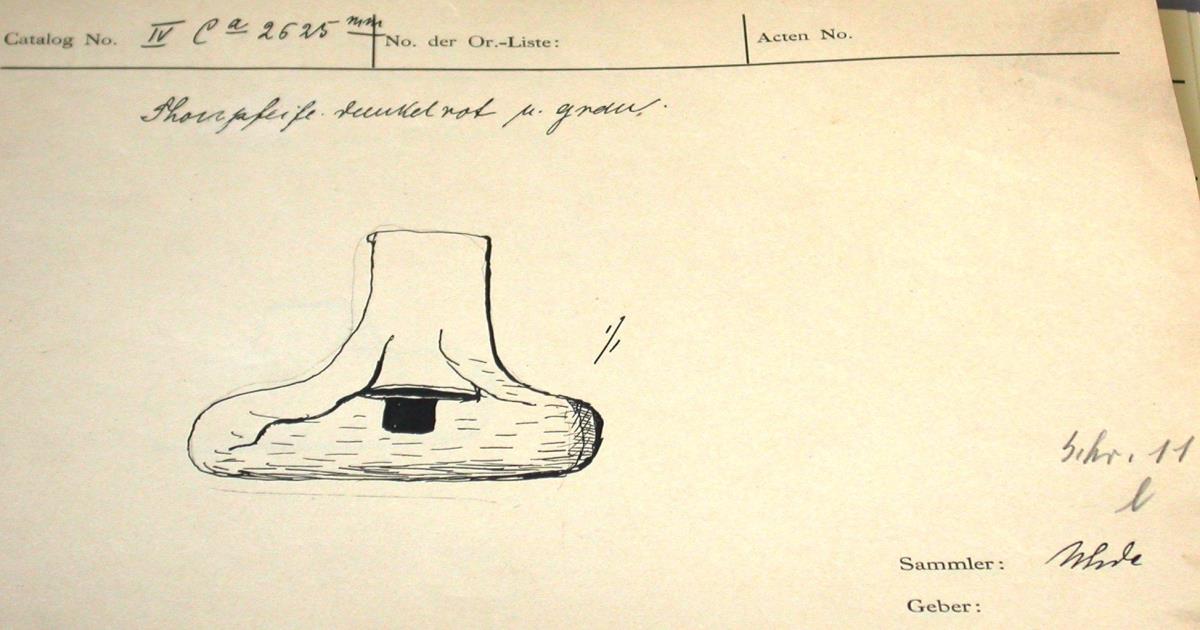 Catalog No. IV Ca 2625 mm No. der Or.-Liste: Acten No.
Thonpfeife. dunkelrot u. grau.
1/1
Schr. 11
l
Sammler: Uhde
Geber: